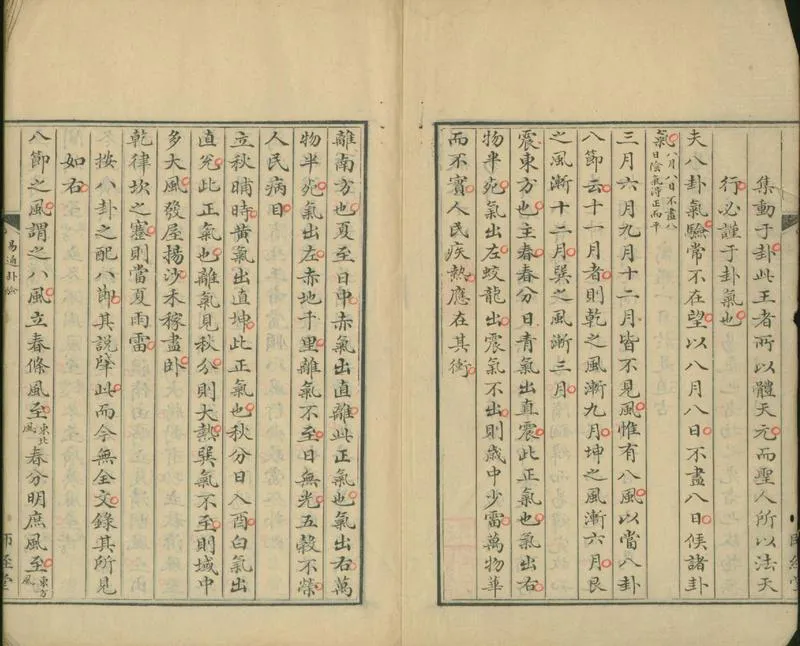 集動于卦此王者所以體天元而聖人所以法天
行必謹于卦氣也
夫八卦氣驗常不在望以八月八日不盡八日候諸卦
氣八月八日不盡八
日陰氣得正而平
三月六月九月十二月皆不見風惟有八風以當八卦
八節云十一月者則乾之風漸九月坤之風漸六月艮
之風漸十二月巽之風漸三月
震東方也主春春分日青氣出直震此正氣也氣出右
物半死氣出左蛟龍出震氣不出則歲中少雷萬物華
而不實人民疾熱應在其衝
離南方也夏至日中赤氣出直離此正氣也氣出右萬
物半死氣出左赤地千里離氣不至日無光五榖不榮
人民病目
立秋晡時黃氣出直坤此正氣也秋分日入酉白氣出
直兊此正氣也離氣見秋分則大熱巽氣不至則城中
多大風發屋揚沙禾稼盡卧
乾律坎之塞則當夏雨雷
按八卦之配八節其說肂此而今無全文錄其所見
如右
八節之風謂之八風立春條風至東北風春分明庶風至東方風
易通卦驗